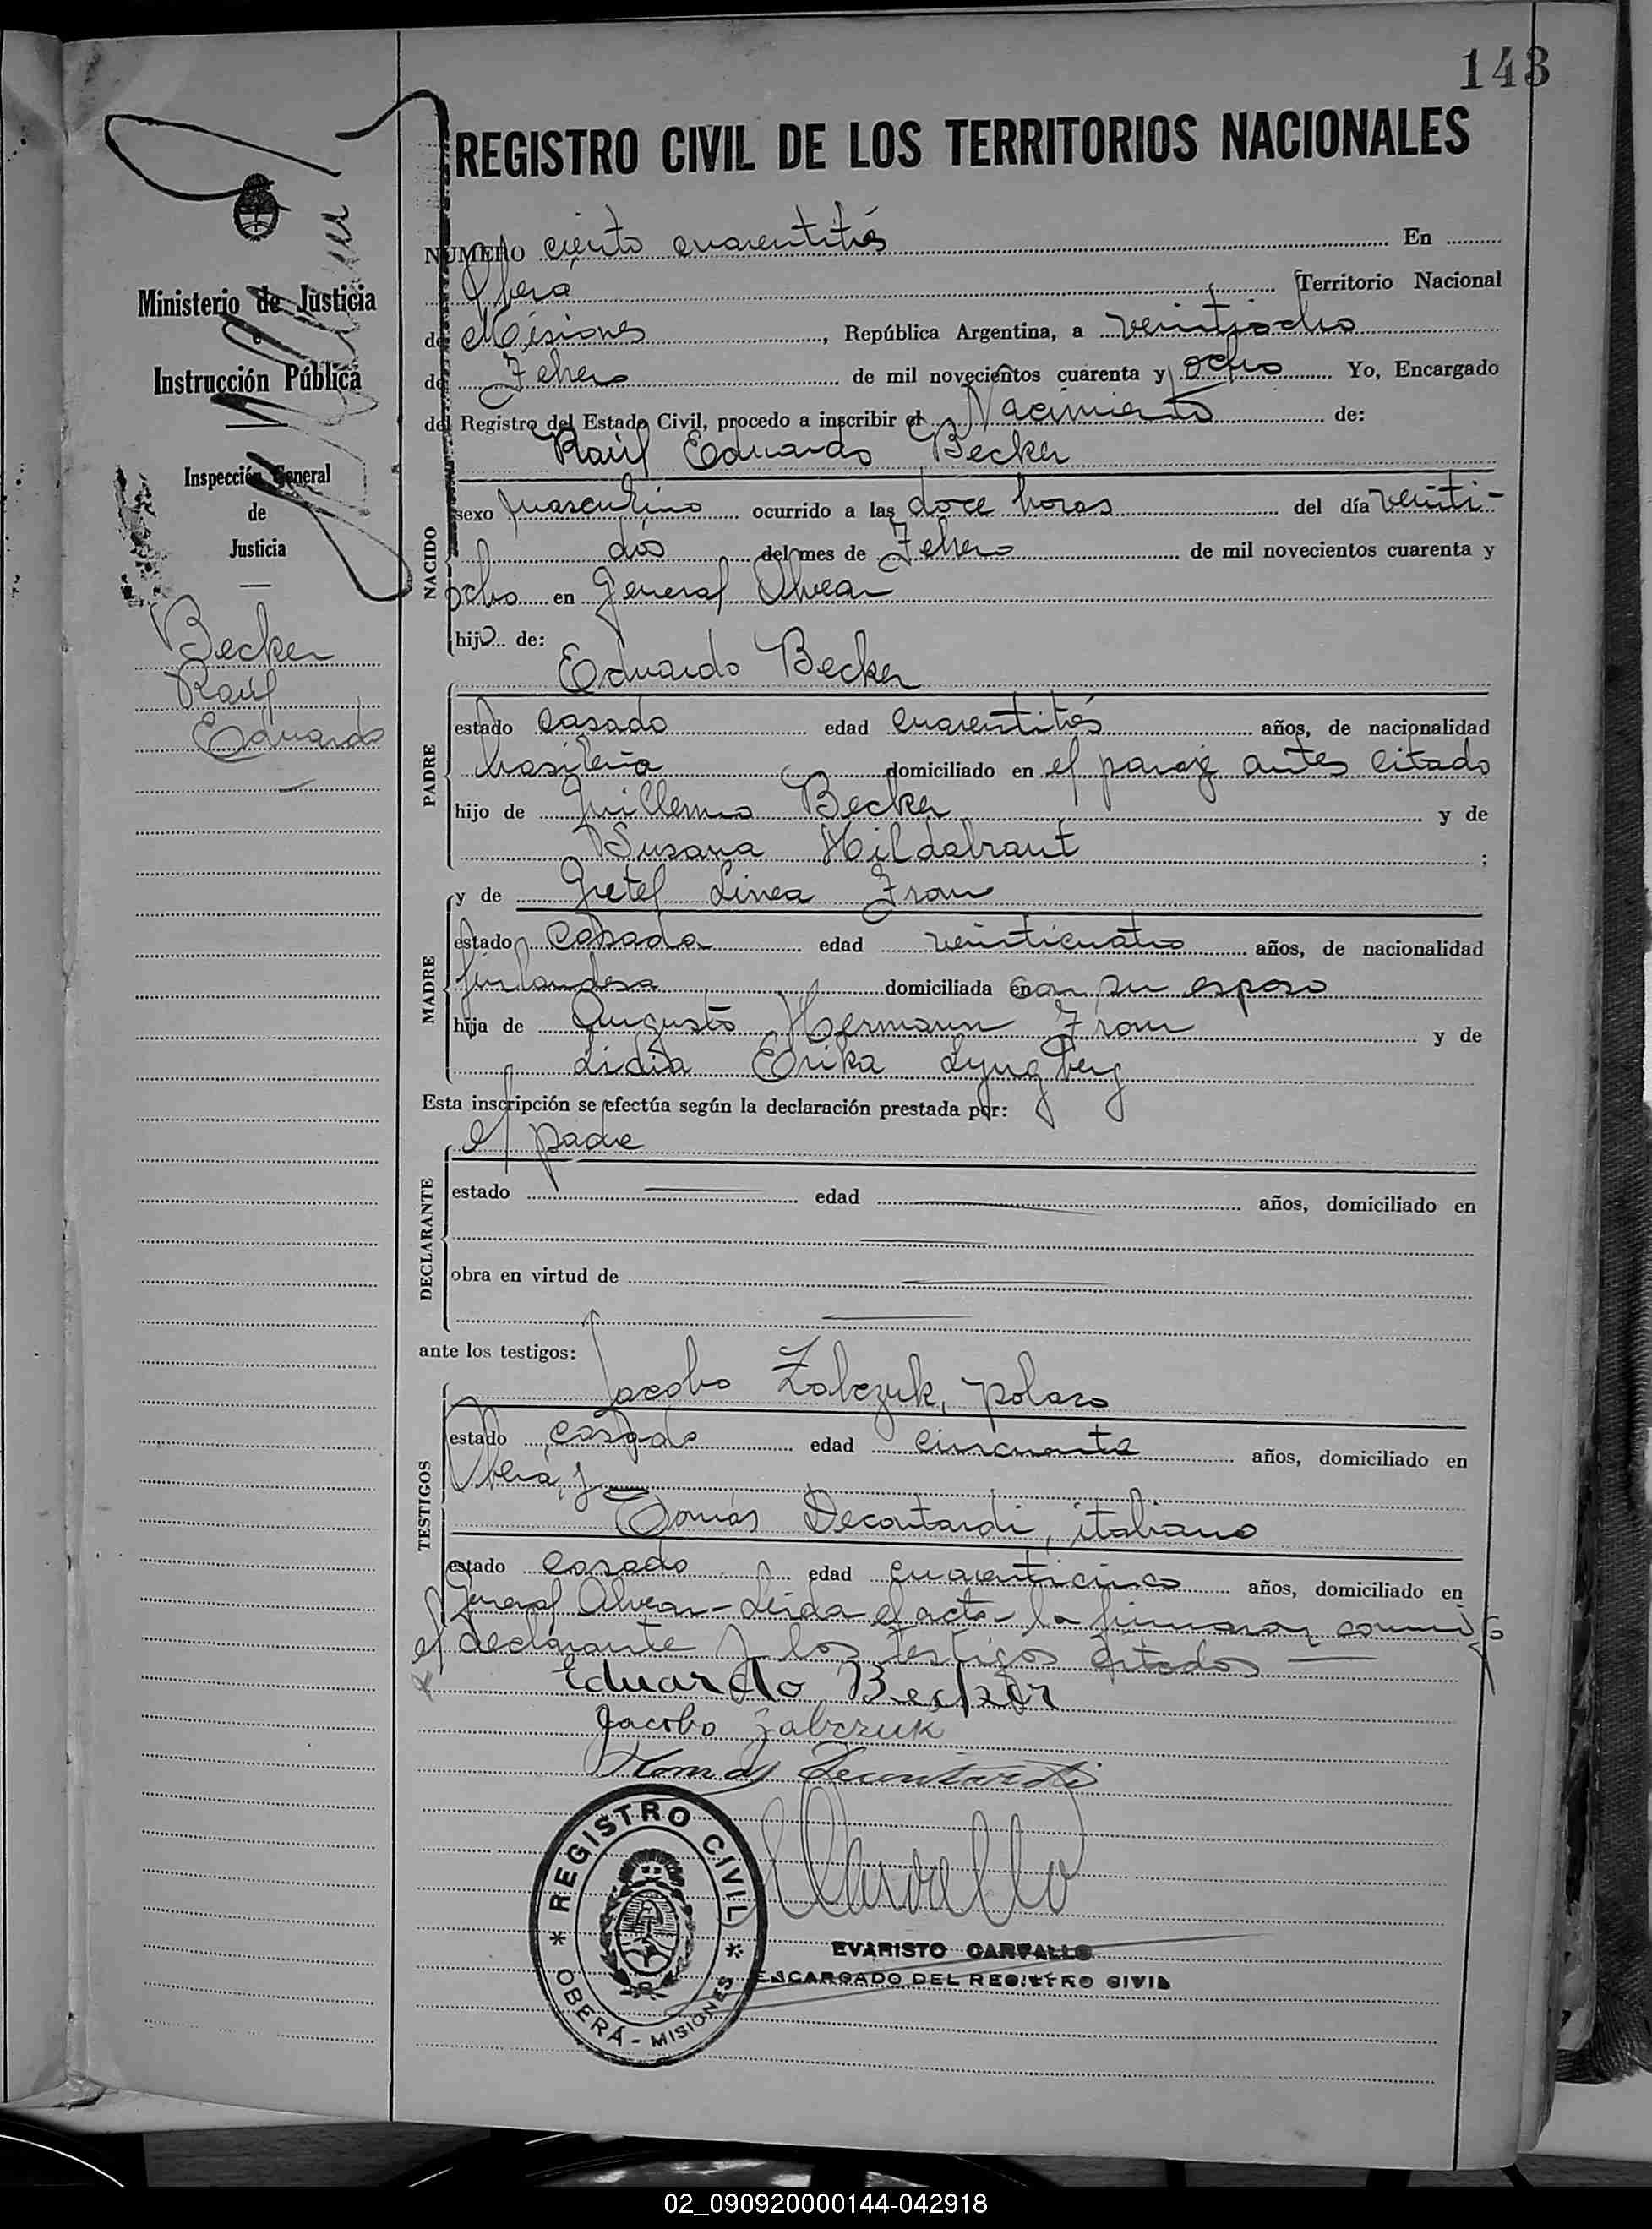 143
REGISTRO CIVIL DE LOS TERRITORIOS NACIONALES
Ministerio de Justicia
e
Instrucción Pública
Inspección General
de
Justicia
Becker
Raúl
Eduardo
NÚMERO ciento cuarentitrés En
Oberá Territorio Nacional
de Misiones, República Argentina, a veintiocho
de Febrero de mil novecientos cuarenta y ocho Yo, Encargado
del Registro del Estado Civil, procedo a inscribir el Nacimiento de:
Raúl Eduardo Becker
NACIDO
sexo masculino ocurrido a las doce horas del día veinti-
dós del mes de Febrero de mil novecientos cuarenta y
ocho en General Alvear
hijo de:
Eduardo Becker
PADRE
estado casado edad cuarentitrés años, de nacionalidad
brasileña domiciliado en el paraje antes citado
hijo de Guillermo Becker y de
Susana Hildebrant ;
y de Gretel Linea Fran
MADRE
estado casada edad veinticuatro años, de nacionalidad
finlandesa domiciliada en con su esposo
hija de Augusto Hermann Fran y de
Lidia Erika Lyngberg
Esta inscripción se efectúa según la declaración prestada por:
el padre
DECLARANTE
estado edad años, domiciliado en
obra en virtud de
ante los testigos:
Jacobo Zabczuk, polaco
TESTIGOS
estado casado edad cincuenta años, domiciliado en
Oberá, y
Tomás Decontardi, italiano
estado casado edad cuarenticinco años, domiciliado en
General Alvear - Leída el acta - la firmaron conmigo
el declarante y los testigos citados
Eduardo Becker
Jacobo Zabczuk
Tomas Decontardi
Carvallo
REGISTRO CIVIL
OBERÁ - MISIONES
EVARISTO CARVALLO
ENCARGADO DEL REGISTRO CIVIL
02_090920000144-042918